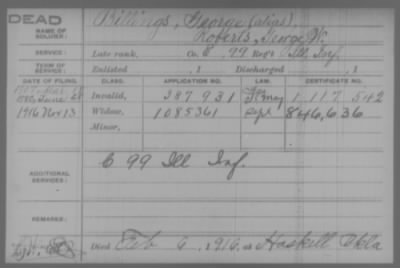 DEAD
NAME OF SOLDIER: Billings, George (alias).
Roberts, George W.
SERVICE: Late rank, Co. C, 99 Reg't Ill. Inf.
TERM OF SERVICE: Enlisted , 1 Discharged , 1
DATE OF FILING. CLASS. APPLICATION NO. LAW. CERTIFICATE NO.
1880 June Invalid, 387931 1117542
1916 Nov 13 Widow, 1085361 Sept 846,636
Minor,
ADDITIONAL SERVICES: C 99 Ill Inf.
REMARKS:
Died Feb 6, 1916, at Haskell Okla